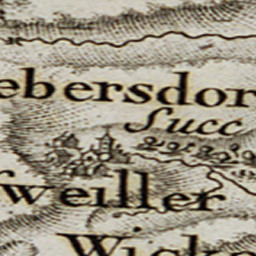 ebersdor
Succ
sweiller
Wick